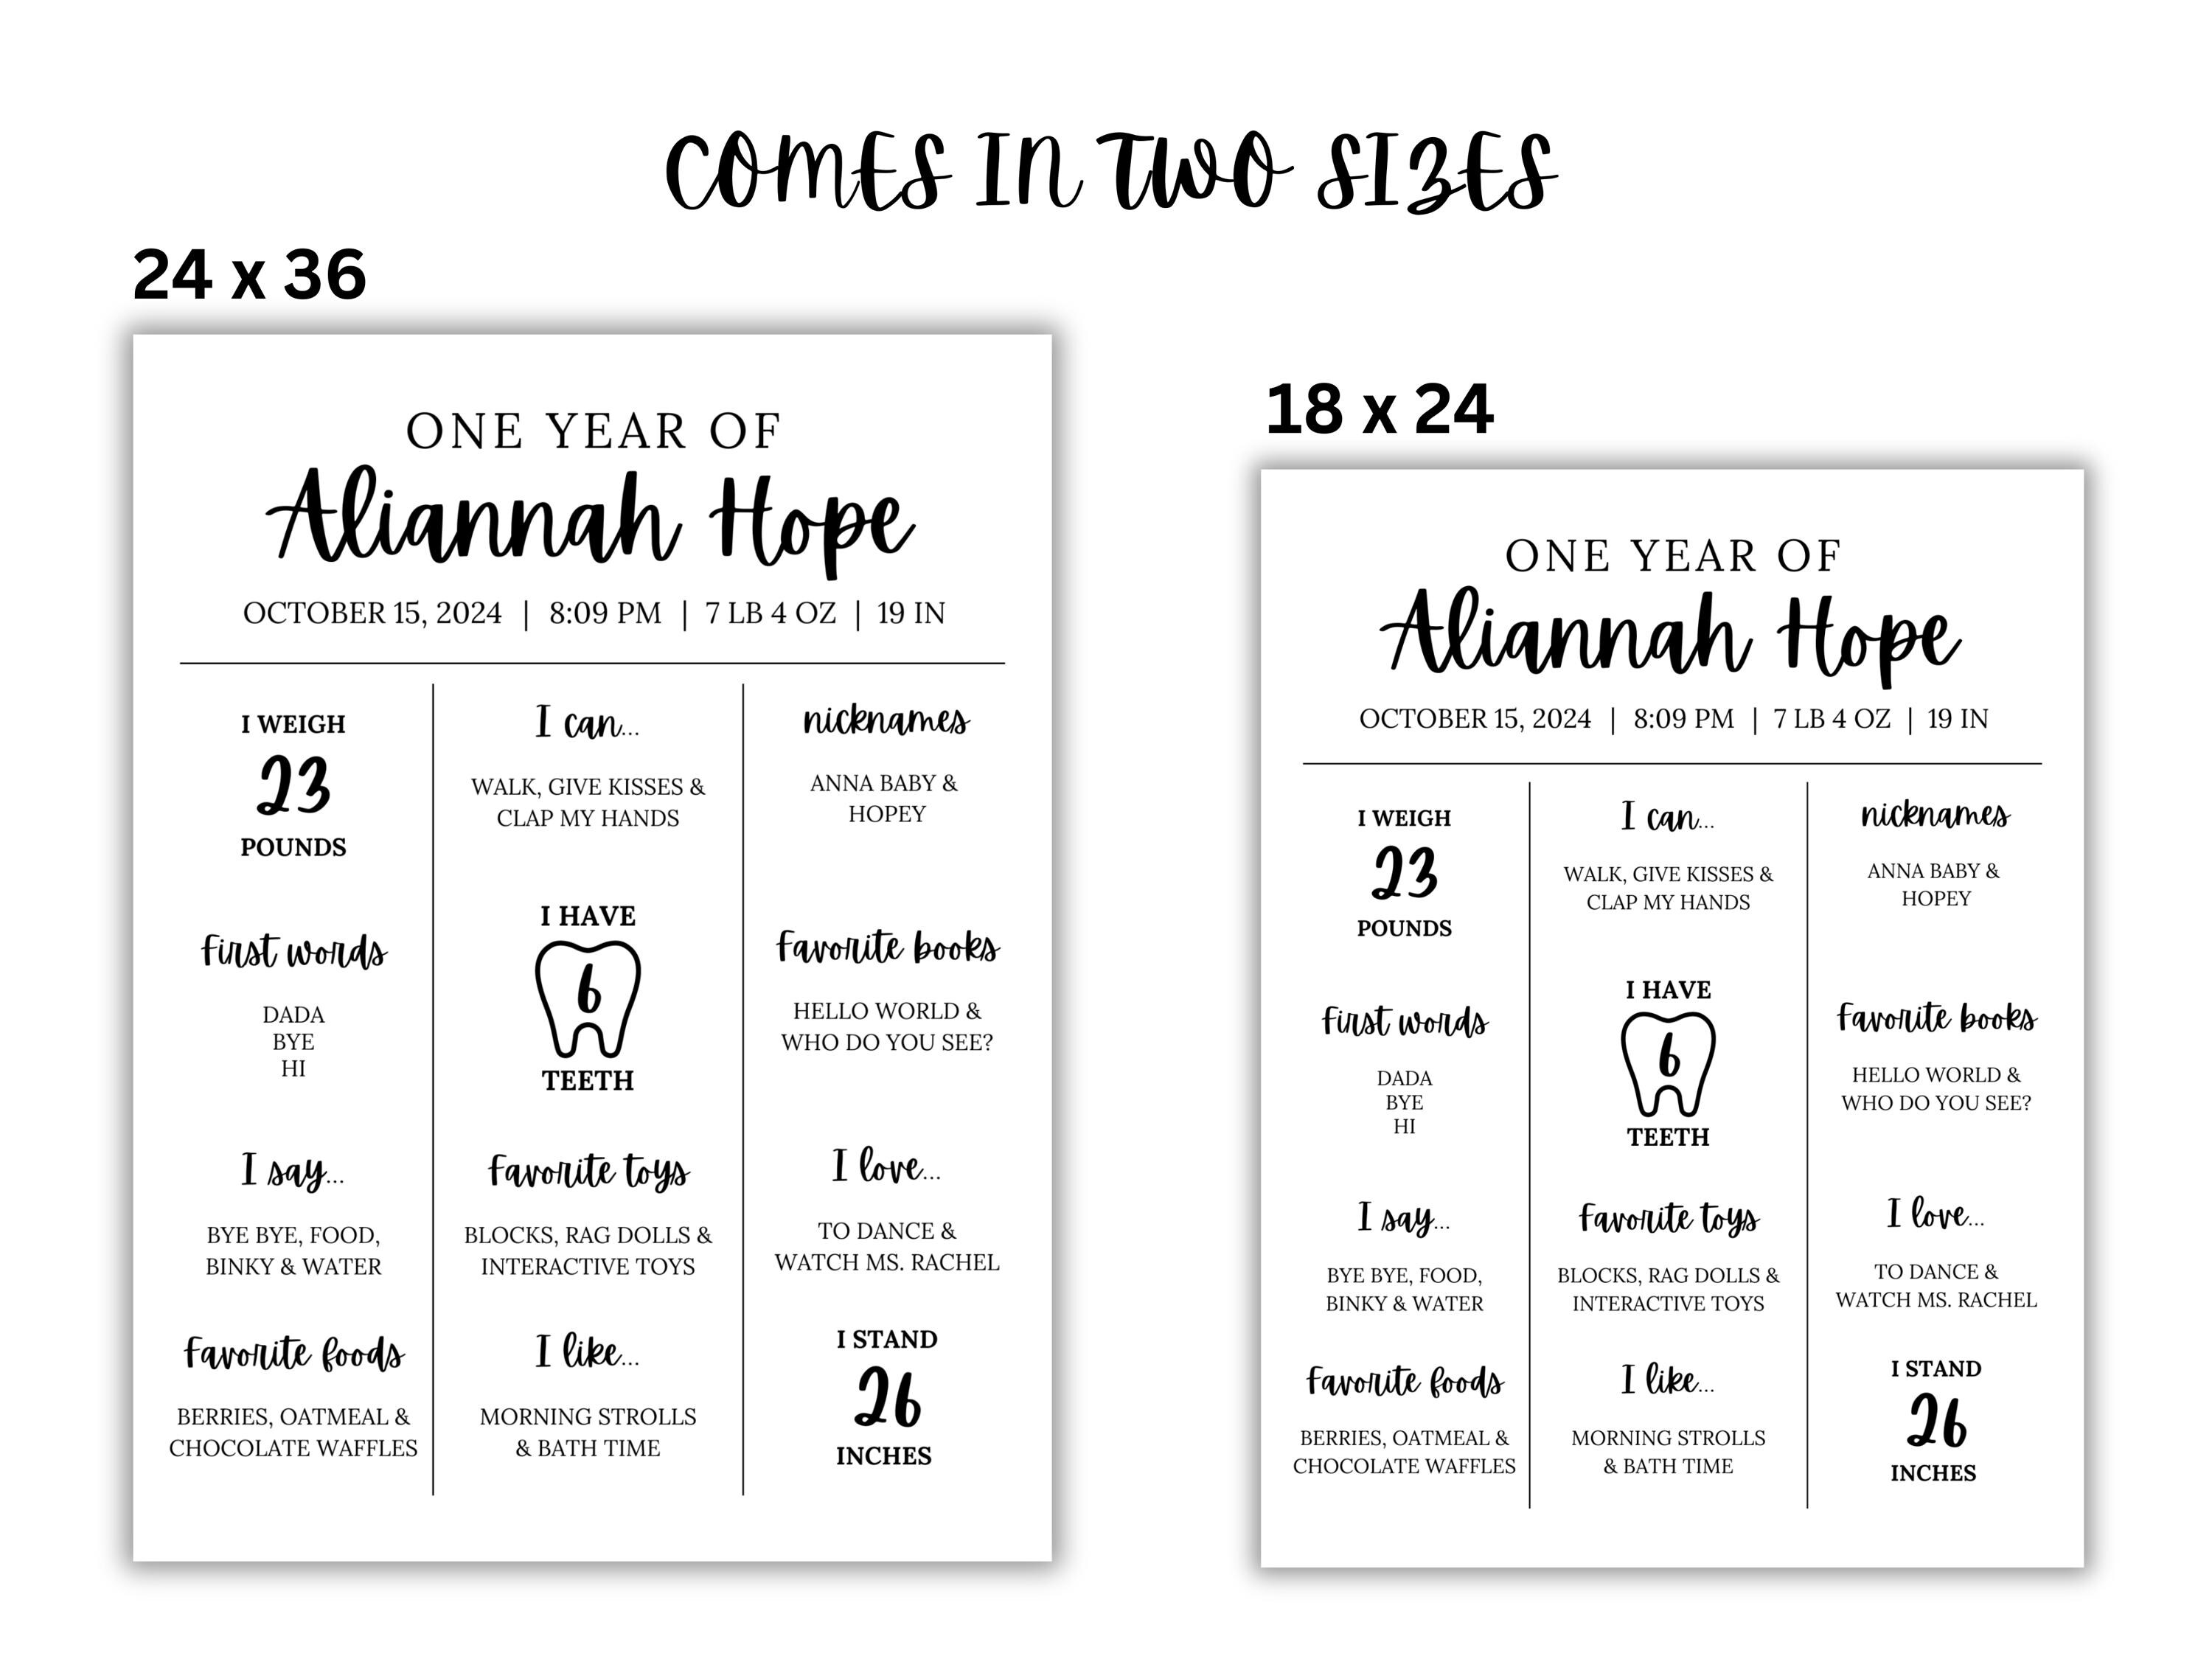 COMES IN TWO SIZES
24 x 36
ONE YEAR OF
Aliannah Hope
OCTOBER 15, 2024 | 8:09 PM | 7 LB 4 OZ | 19 IN
I WEIGH
23
POUNDS
first words
DADA
BYE
HI
I say...
BYE BYE, FOOD,
BINKY & WATER
favorite foods
BERRIES, OATMEAL &
CHOCOLATE WAFFLES
I can...
WALK, GIVE KISSES &
CLAP MY HANDS
I HAVE
6
TEETH
favorite toys
BLOCKS, RAG DOLLS &
INTERACTIVE TOYS
I like...
MORNING STROLLS
& BATH TIME
nicknames
ANNA BABY &
HOPEY
favorite books
HELLO WORLD &
WHO DO YOU SEE?
I love...
TO DANCE &
WATCH MS. RACHEL
I STAND
26
INCHES
18 x 24
ONE YEAR OF
Aliannah Hope
OCTOBER 15, 2024 | 8:09 PM | 7 LB 4 OZ | 19 IN
I WEIGH
23
POUNDS
first words
DADA
BYE
HI
I say...
BYE BYE, FOOD,
BINKY & WATER
favorite foods
BERRIES, OATMEAL &
CHOCOLATE WAFFLES
I can...
WALK, GIVE KISSES &
CLAP MY HANDS
I HAVE
6
TEETH
favorite toys
BLOCKS, RAG DOLLS &
INTERACTIVE TOYS
I like...
MORNING STROLLS
& BATH TIME
nicknames
ANNA BABY &
HOPEY
favorite books
HELLO WORLD &
WHO DO YOU SEE?
I love...
TO DANCE &
WATCH MS. RACHEL
I STAND
26
INCHES